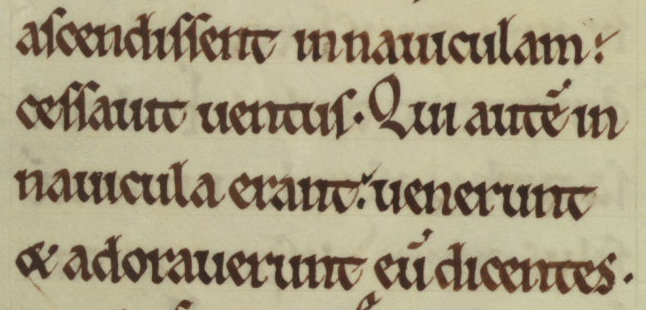 ascendissent in nauiculam:
cessauit uentus. Qui autē in
nauicula erant: uenerunt
& adorauerunt eū dicentes.